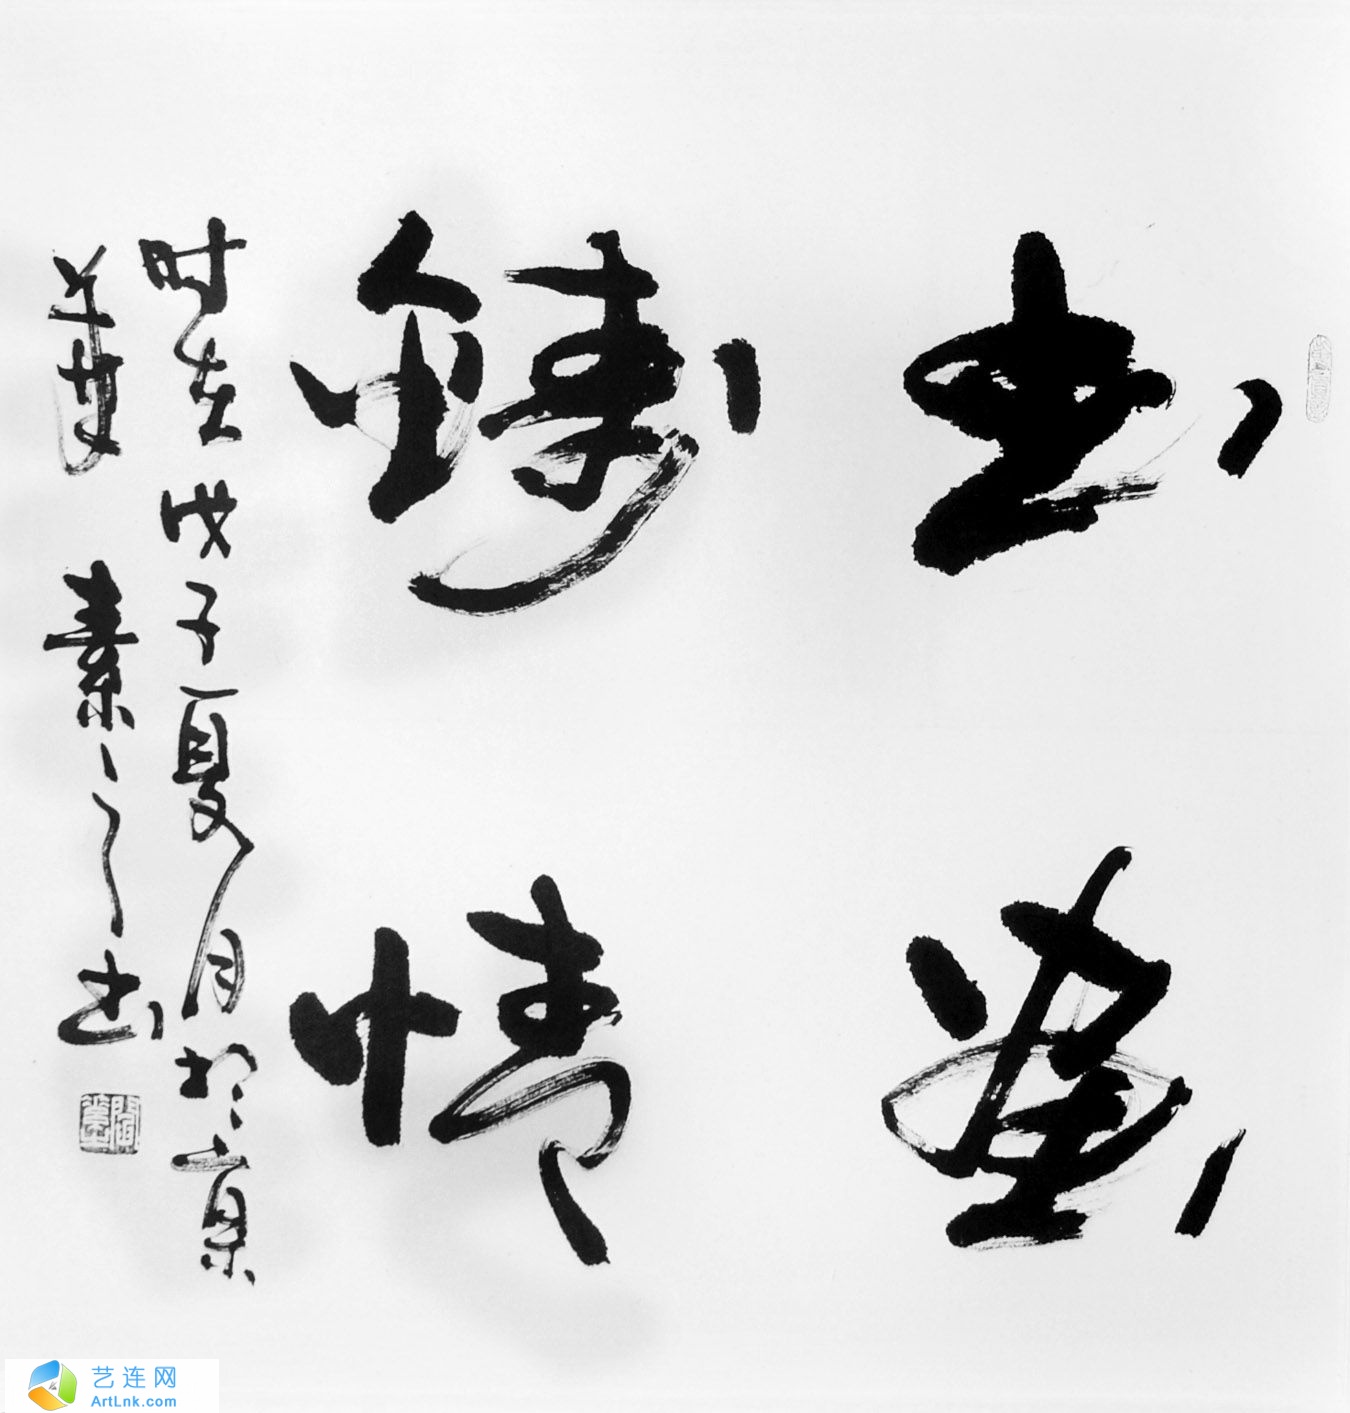 书画
铸情
时在戊子夏月於京
華 素之书
艺连网
ArtLnk.com